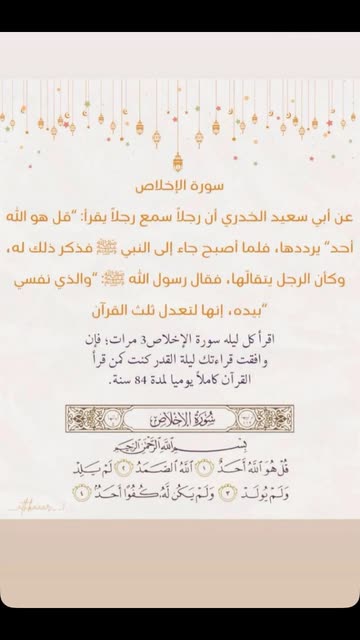 سورة الإخلاص
عن أبي سعيد الخدري أن رجلاً سمع رجلاً يقرأ: "قل هو الله
أحد" يرددها، فلما أصبح جاء إلى النبي ﷺ فذكر ذلك له،
وكأن الرجل يتقالّها، فقال رسول الله ﷺ: "والذي نفسي
بيده، إنها لتعدل ثلث القرآن"
اقرأ كل ليله سورة الإخلاص3 مرات؛ فإن
وافقت قراءتك ليلة القدر كنت كمن قرأ
القرآن كاملاً يوميا لمدة 84 سنة.
سُورَةُ الإِخْلَاصِ
بِسْمِ اللَّهِ الرَّحْمَٰنِ الرَّحِيمِ
قُلْ هُوَ اللَّهُ أَحَدٌ ١ اللَّهُ الصَّمَدُ ٢ لَمْ يَلِدْ
وَلَمْ يُولَدْ ٣ وَلَمْ يَكُن لَّهُ كُفُوًا أَحَدٌ ٤